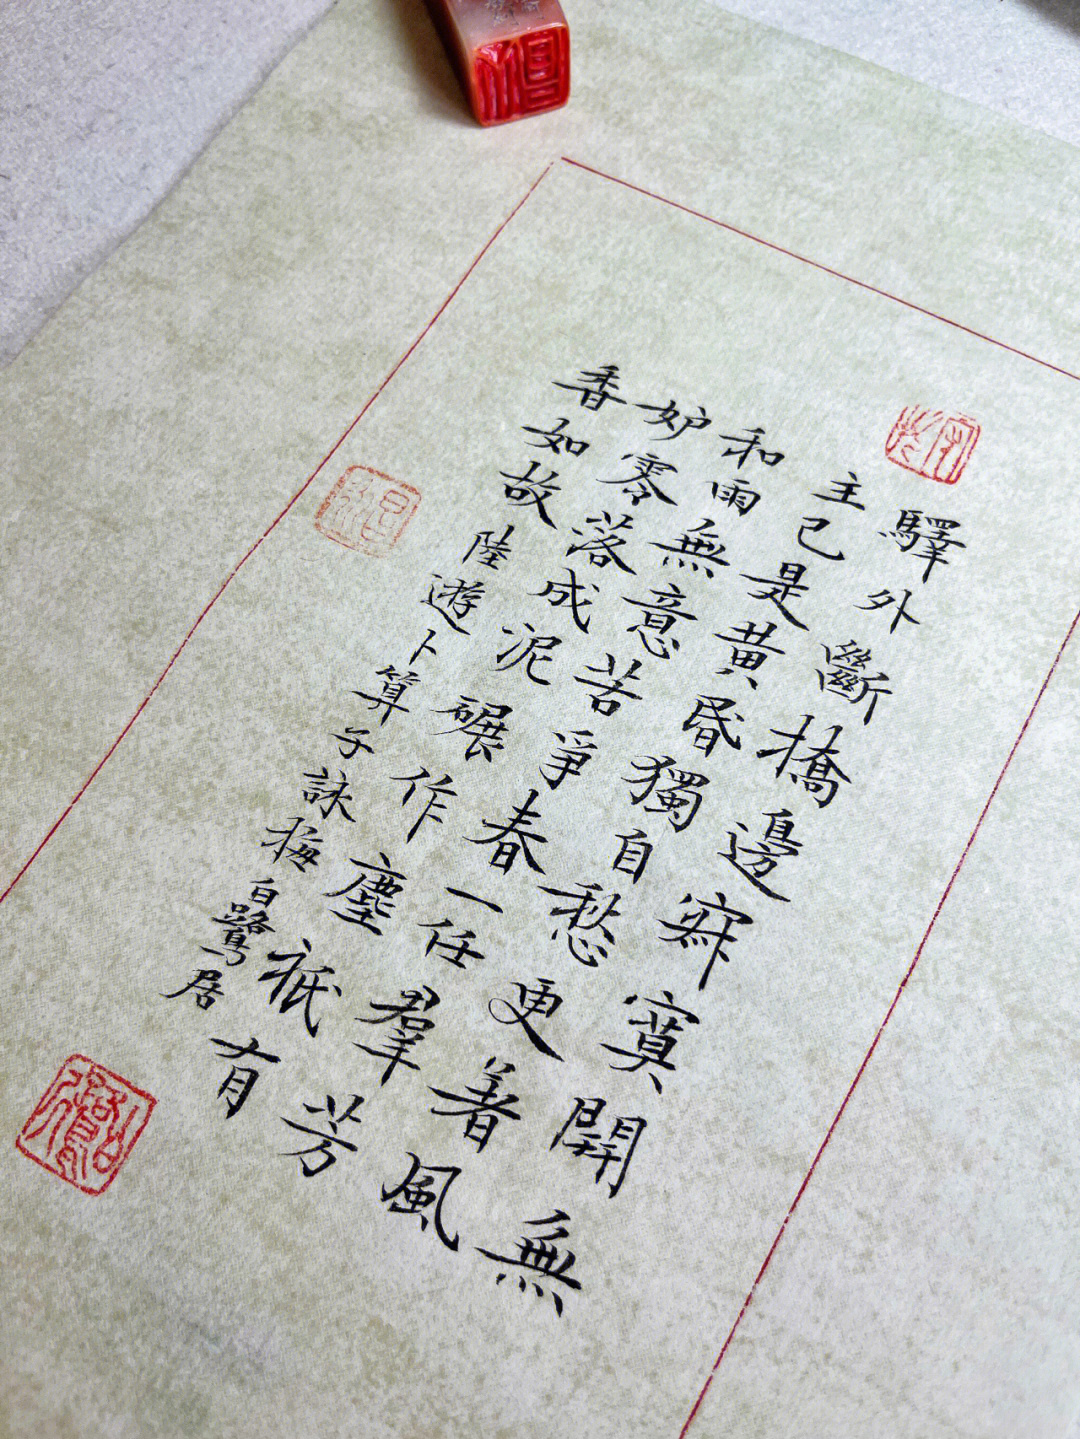 驛外斷橋邊寂寞開無
主已是黃昏獨自愁更著風
和雨無意苦爭春一任羣芳
妒零落成泥碾作塵祇有
香如故 陸遊卜算子詠梅 白鷺居